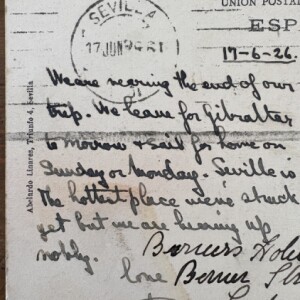 UNION POSTA
ESP
SEVILLA
17 JUN 26
17-6-26.
We are nearing the end of our
trip. We leave for Gibraltar
to morrow & sail for home on
Sunday or Monday. Seville is
the hottest place we've struck
yet but we are bearing up
nobly.
Barriers Hotel
love Berner Str
Abelardo Linares, Triunfo 4, Sevilla